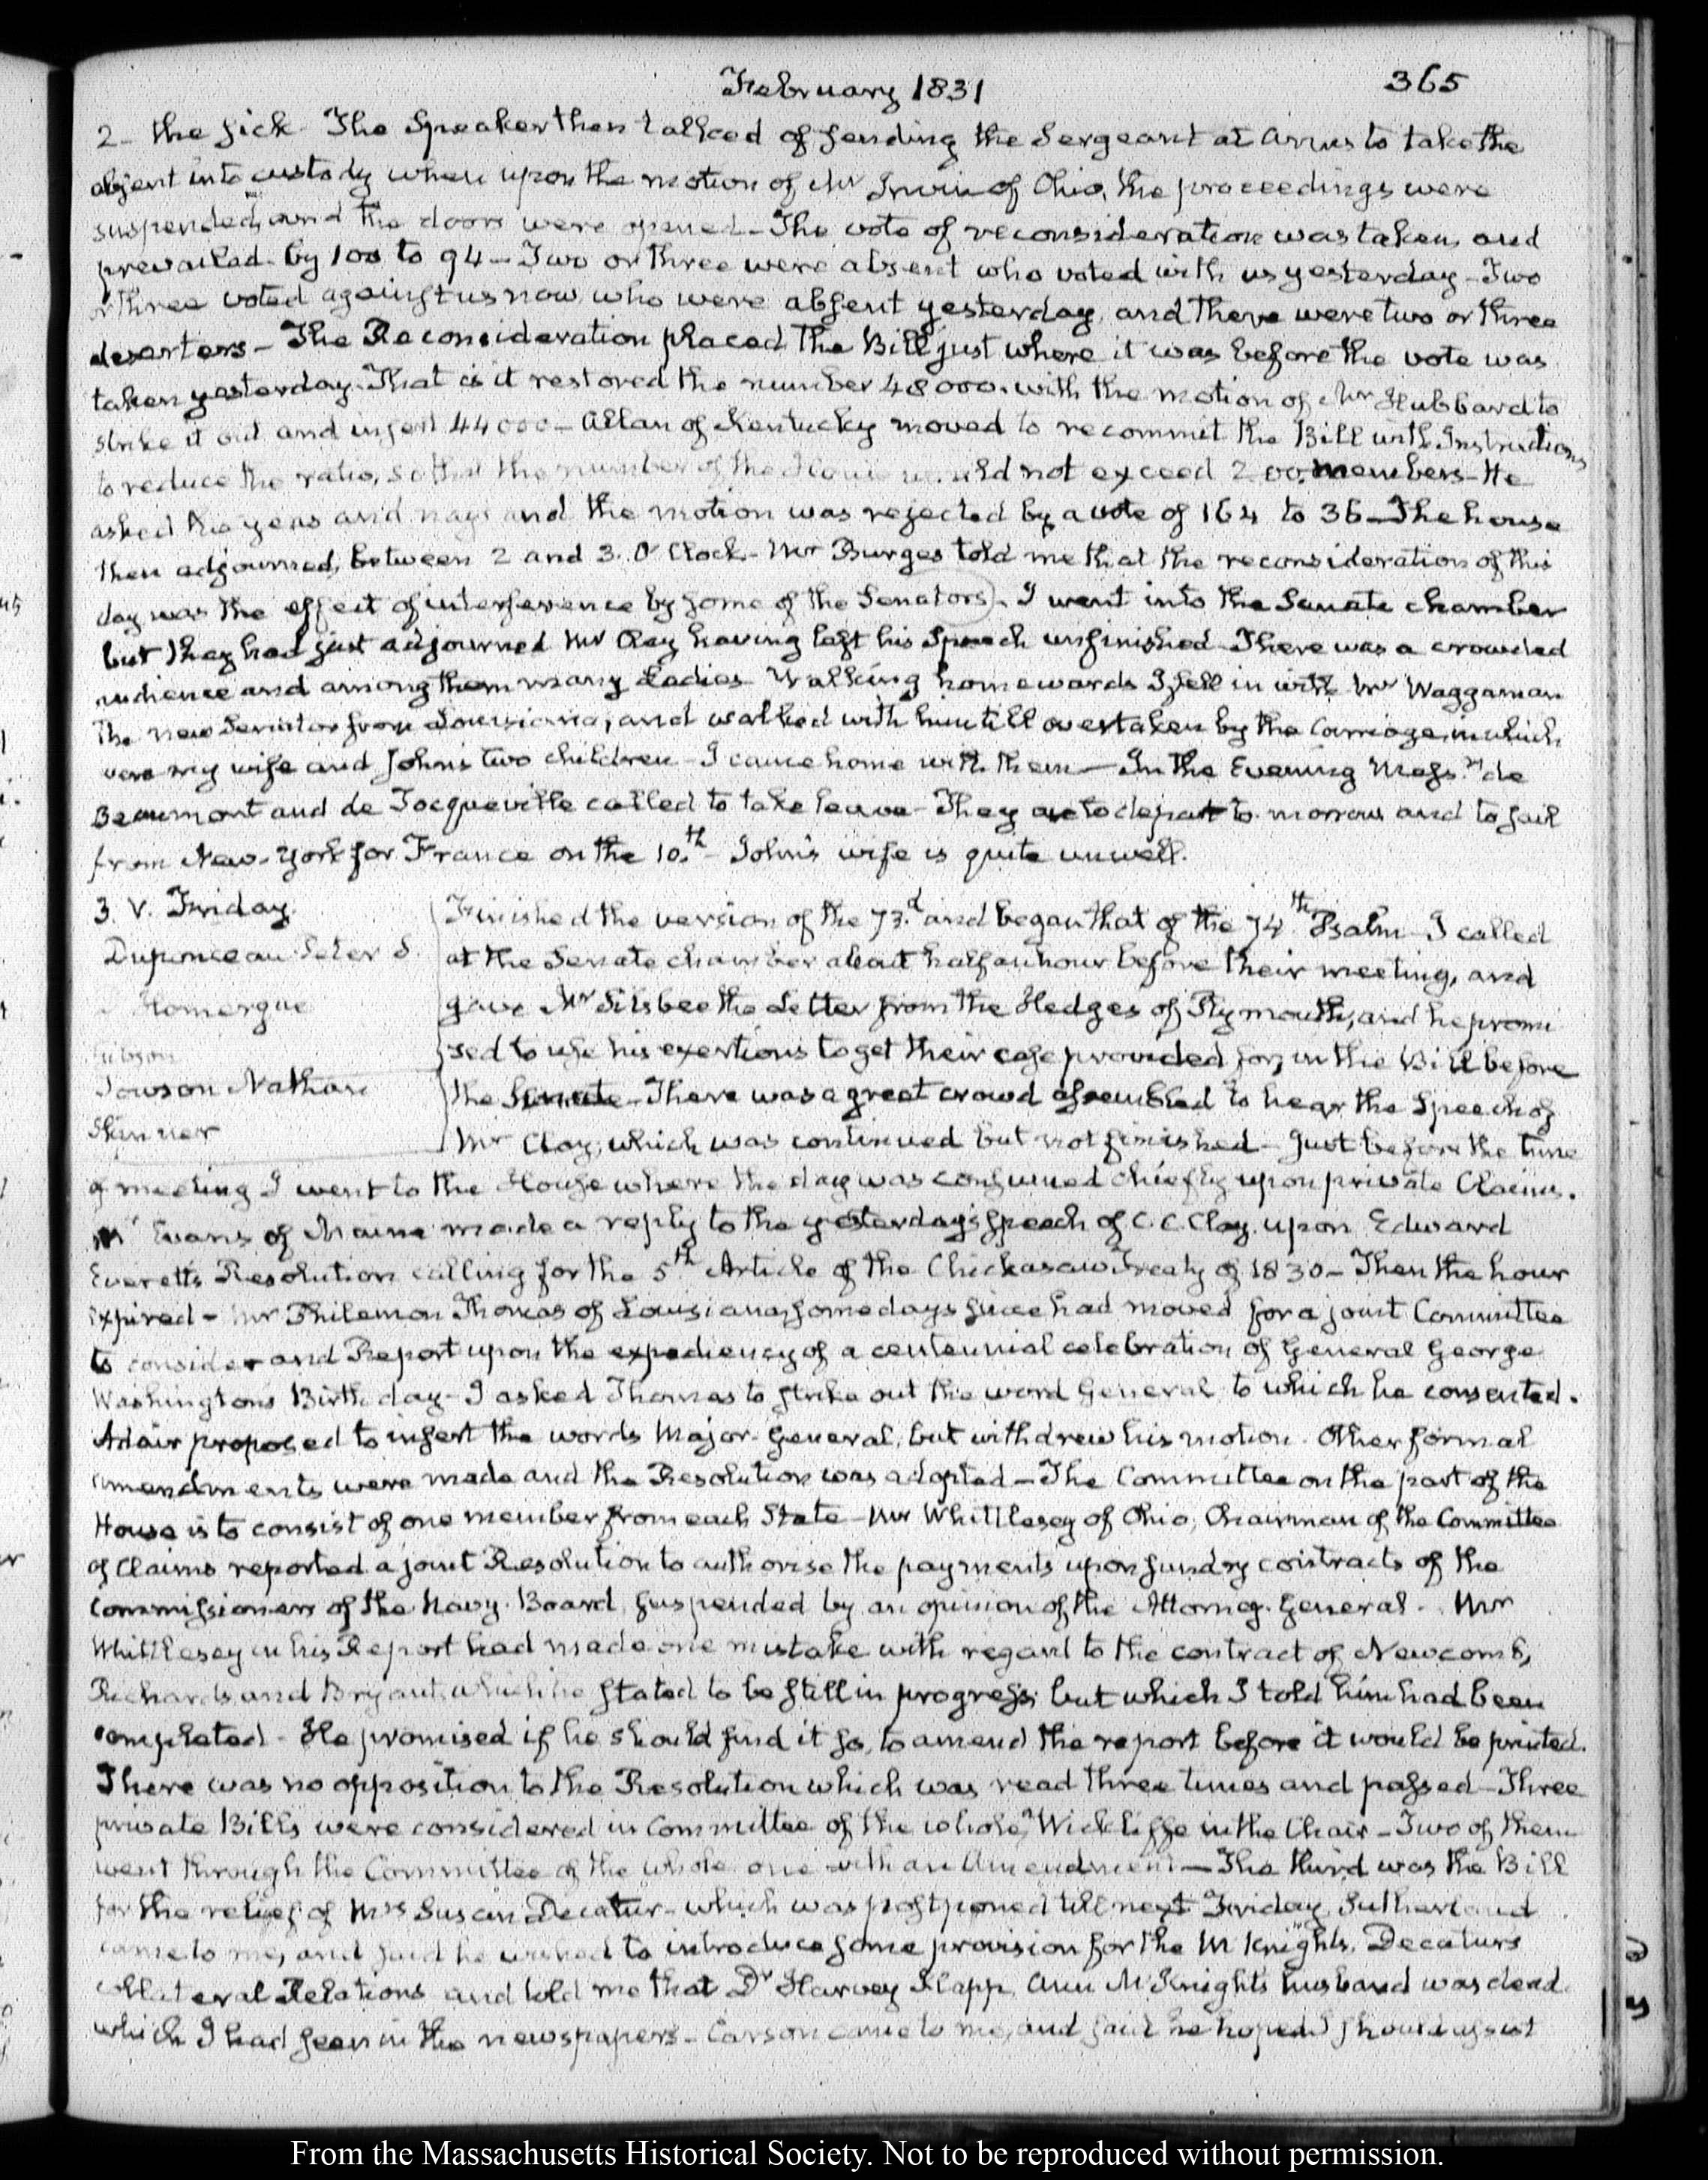 February 1831
365
2 - the sick. The Speaker then talked of sending the Sergeant at Arms to take the
absent into custody when upon the motion of Mr Irwin of Ohio, the proceedings were
suspended, and the doors were opened - The vote of reconsideration was taken, and
prevailed by 100 to 94 - Two or three were absent who voted with us yesterday - Two
or three voted against us now, who were absent yesterday, and there were two or three
deserters - The Reconsideration placed the Bill just where it was before the vote was
taken yesterday. That is it restored the number 48000. with the motion of Mr Hubbard to
strike it out and insert 44000 - Allan of Kentucky moved to recommit the Bill with Instructions
to reduce the ratio, so that the number of the House would not exceed 200 members - He
asked the yeas and nays and the motion was rejected by a vote of 164 to 36 - The house
then adjourned, between 2 and 3. O'Clock - Mr Burges told me that the reconsideration of this
day was the effect of interference by some of the Senators). I went into the Senate chamber
but they had just adjourned Mr Clay having left his Speech unfinished - There was a crowded
audience and among them many Ladies - Walking homewards I fell in with Mr Waggaman
the new Senator from Louisiana, and walked with him till overtaken by the Carriage, in which
were my wife and John's two children - I came home with them - In the Evening Messrs. de
Beaumont and de Tocqueville called to take leave - They are to depart to-morrow and to sail
from New-York for France on the 10.th - John's wife is quite unwell.
3. V. Friday.
Duponceau Peter S.
Homergue
Gibson
Towson Nathan
Skinner
Finished the version of the 73.d and began that of the 74.th Psalm - I called
at the Senate chamber about half an hour before their meeting, and
gave Mr Silsbee the Letter from the Hedges of Plymouth, and he promi
sed to use his exertions to get their case provided for, in the Bill before
the Senate - There was a great crowd assembled to hear the Speech of
Mr Clay, which was continued but not finished - Just before the time
of meeting I went to the House where the day was consumed chiefly upon private Claims.
Mr Evans of Maine made a reply to the yesterday's speech of C. C. Clay. upon Edward
Everett's Resolution calling for the 5th Article of the Chickasaw Treaty of 1830 - Then the hour
expired - Mr Philemon Thomas of Louisiana, some days since had moved for a joint Committee
to consider and Report upon the expediency of a centennial celebration of General George
Washington's Birth day - I asked Thomas to strike out the word General to which he consented.
Adair proposed to insert the words Major-General, but withdrew his motion. Other formal
amendments were made and the Resolution was adopted - The Committee on the part of the
House is to consist of one member from each State - Mr Whittlesey of Ohio, Chairman of the Committee
of Claims reported a joint Resolution to authorise the payments upon sundry contracts of the
Commissioners of the Navy. Board, suspended by an opinion of the Attorney. General. Mr
Whittlesey in his Report had made one mistake with regard to the contract of Newcomb,
Richards and Bryant, which he stated to be still in progress, but which I told him had been
completed - He promised if he should find it so, to amend the report before it would be printed.
There was no opposition to the Resolution which was read three times and passed - Three
private Bills were considered in Committee of the whole, Wickliffe in the Chair - Two of them
went through the Committee of the whole one with an Amendment - The third was the Bill
for the relief of Mrs Susan Decatur - which was postponed till next Friday. Sutherland
came to me, and said he wished to introduce some provision for the McKnights, Decatur's
collateral Relations and told me that Dr Harvey Klapp, Ann McKnight's husband was dead
which I had seen in the newspapers - Carson came to me, and said he hoped I should assist
From the Massachusetts Historical Society. Not to be reproduced without permission.